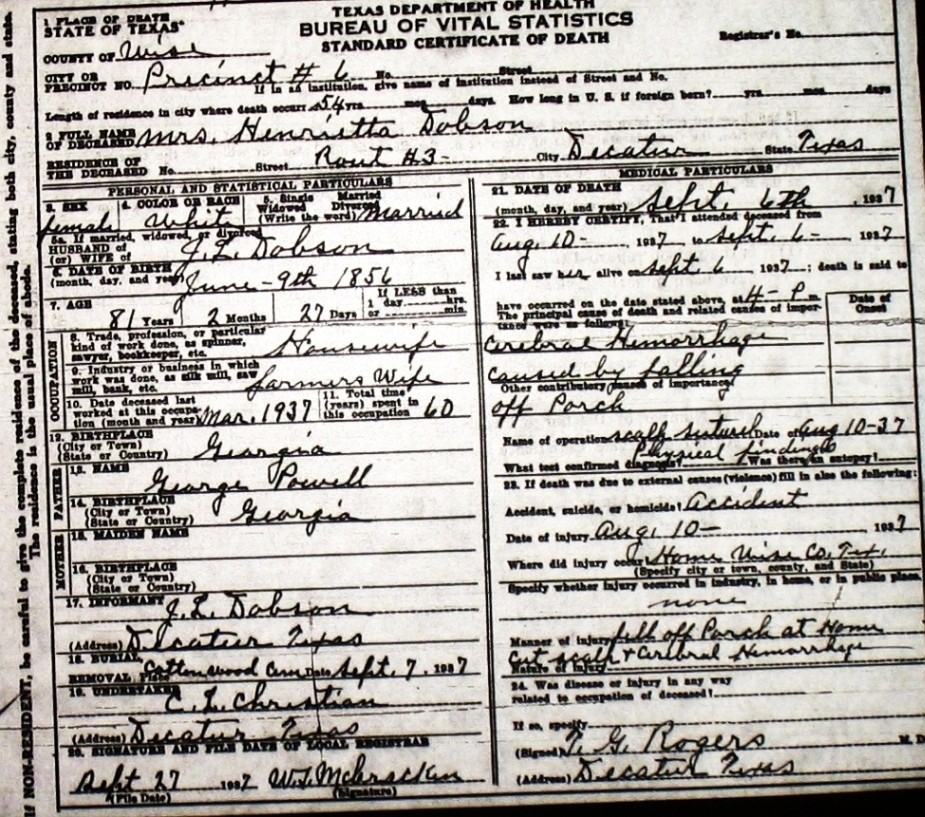 TEXAS DEPARTMENT OF HEALTH
BUREAU OF VITAL STATISTICS
STANDARD CERTIFICATE OF DEATH
1 PLACE OF DEATH
STATE OF TEXAS
Registrar's No.
COUNTY OF Wise
CITY OR
PRECINCT NO. Precinct # 6 No. Street
If in an institution, give name of institution instead of Street and No.
Length of residence in city where death occurred 54 yrs. mos. days. How long in U. S. if foreign born? yrs. mos. days
2 FULL NAME
OF DECEASED Mrs. Henrietta Dobson
RESIDENCE OF
THE DECEASED No. Street Rout #3- City Decatur State Texas
PERSONAL AND STATISTICAL PARTICULARS
3. SEX 4. COLOR OR RACE 5. Single Married
Widowed Divorced
(Write the word) Married
female Whit
5a. If married, widowed, or divorced
HUSBAND of
(or) WIFE of J. L. Dobson
6. DATE OF BIRTH
(month, day, and year) June-9th 1856
7. AGE If LESS than
1 day hrs.
or min.
81 Years 2 Months 27 Days
OCCUPATION
8. Trade, profession, or particular
kind of work done, as spinner,
sawyer, bookkeeper, etc. Housewife
9. Industry or business in which
work was done, as silk mill, saw
mill, bank, etc. farmers Wife
10. Date deceased last
worked at this occupa-
tion (month and year) Mar. 1937
11. Total time
(years) spent in
this occupation 60
12. BIRTHPLACE
(City or Town)
(State or Country) Georgia
FATHER
13. NAME George Powell
14. BIRTHPLACE
(City or Town)
(State or Country) Georgia
MOTHER
15. MAIDEN NAME
16. BIRTHPLACE
(City or Town)
(State or Country)
17. INFORMANT J. L. Dobson
(Address) Decatur Texas
18. BURIAL
REMOVAL Place Cottonwood Cem. Date Sept. 7, 1937
19. UNDERTAKER C. L. Christian
(Address) Decatur Texas
20. SIGNATURE AND FILE DATE OF LOCAL REGISTRAR
Sept 27 1937 W. L. McCracken
(File Date) (Signature)
MEDICAL PARTICULARS
21. DATE OF DEATH
(month, day, and year) Sept. 6th, 1937
22. I HEREBY CERTIFY, That I attended deceased from
Aug. 10-, 1937 to Sept. 6-, 1937
I last saw her alive on Sept 6, 1937; death is said to
have occurred on the date stated above, at 4- P m.
The principal cause of death and related causes of impor-
tance were as follows:
Date of
Onset
Cerebral Hemorrhage
caused by falling
Other contributory causes of importance
off Porch
Name of operation scalp sutured Date of Aug 10-37
What test confirmed diagnosis? Physical findings Was there an autopsy?
23. If death was due to external causes (violence) fill in also the following:
Accident, suicide, or homicide? Accident
Date of injury Aug. 10- 1937
Where did injury occur? Home Wise Co. Tex.
(Specify city or town, county, and State)
Specify whether injury occurred in industry, in home, or in public place.
none
Manner of injury fell off Porch at Home
Nature of injury Cut scalp & Cerebral Hemorrhage
24. Was disease or injury in any way
related to occupation of deceased?
If so, specify
(Signed) T. G. Rogers M. D.
(Address) Decatur Texas
If NON-RESIDENT, be careful to give the complete residence of the deceased, stating both city, county and state.
The residence is the usual place of abode.